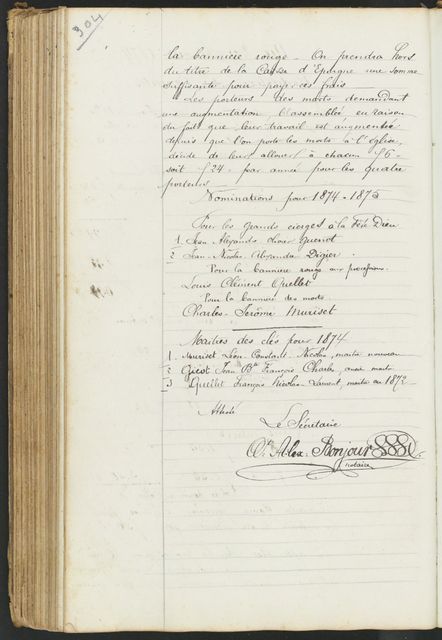 304
la bannière rouge. On prendra hors
du titre de la Caisse d'Epargne une somme
suffisante pour payer ces frais
Les porteurs des morts demandant
une augmentation, l'assemblée en raison
du fait que leur travail est augmentée
depuis que l'on porte les morts à l'église,
décide de leur allouer à chacun f 6 -
soit f 24 - par année pour les quatre
porteurs
Nominations pour 1874-1875
Pour les grands cierges à la Fête Dieu
1 Jean Alexandre Olivier Guenot
2 Jean Nicolas Alexandre Digier.
Pour la bannière rouge aux processions.
Louis Clément Quellet
Pour la bannière des morts
Charles-Jérôme Muriset
Maîtres des clés pour 1874
1. Muriset Léon Constant Nicolas, maître nouveau
2 Gicot Jean Bte François Charles, maître
3 Quellet François Nicolas Laurent, maître en 1872
Attesté
Le Sécrétaire
Alex. Bonjour
notaire